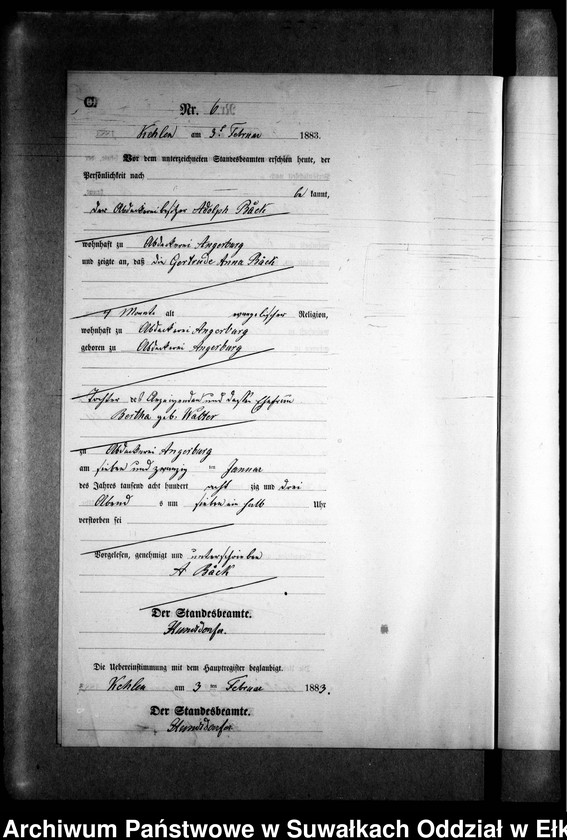 Nr. 6
Kehlen am 3t Februar 1883.
Vor dem unterzeichneten Standesbeamten erschien heute, der
Persönlichkeit nach
be kannt,
der Abdeckereibesitzer Adolph Bäck
wohnhaft zu Abdeckerei Angerburg
und zeigte an, daß die Gertrude Anna Bäck
9 Monate alt evangelischer Religion,
wohnhaft zu Abdeckerei Angerburg
geboren zu Abdeckerei Angerburg
Tochter des Anzeigenden und dessen Ehefrau
Bertha geb. Walter
zu Abdeckerei Angerburg
am sieben und zwanzig ten Januar
des Jahres tausend acht hundert acht zig und drei
Abend s um sieben ein halb Uhr
verstorben sei
Vorgelesen, genehmigt und unterschrieben
A Bäck
Der Standesbeamte.
Die Uebereinstimmung mit dem Hauptregister beglaubigt.
Kehlen am 3 ten Februar 1883.
Der Standesbeamte.
Archiwum Państwowe w Suwałkach Oddział w Ełk